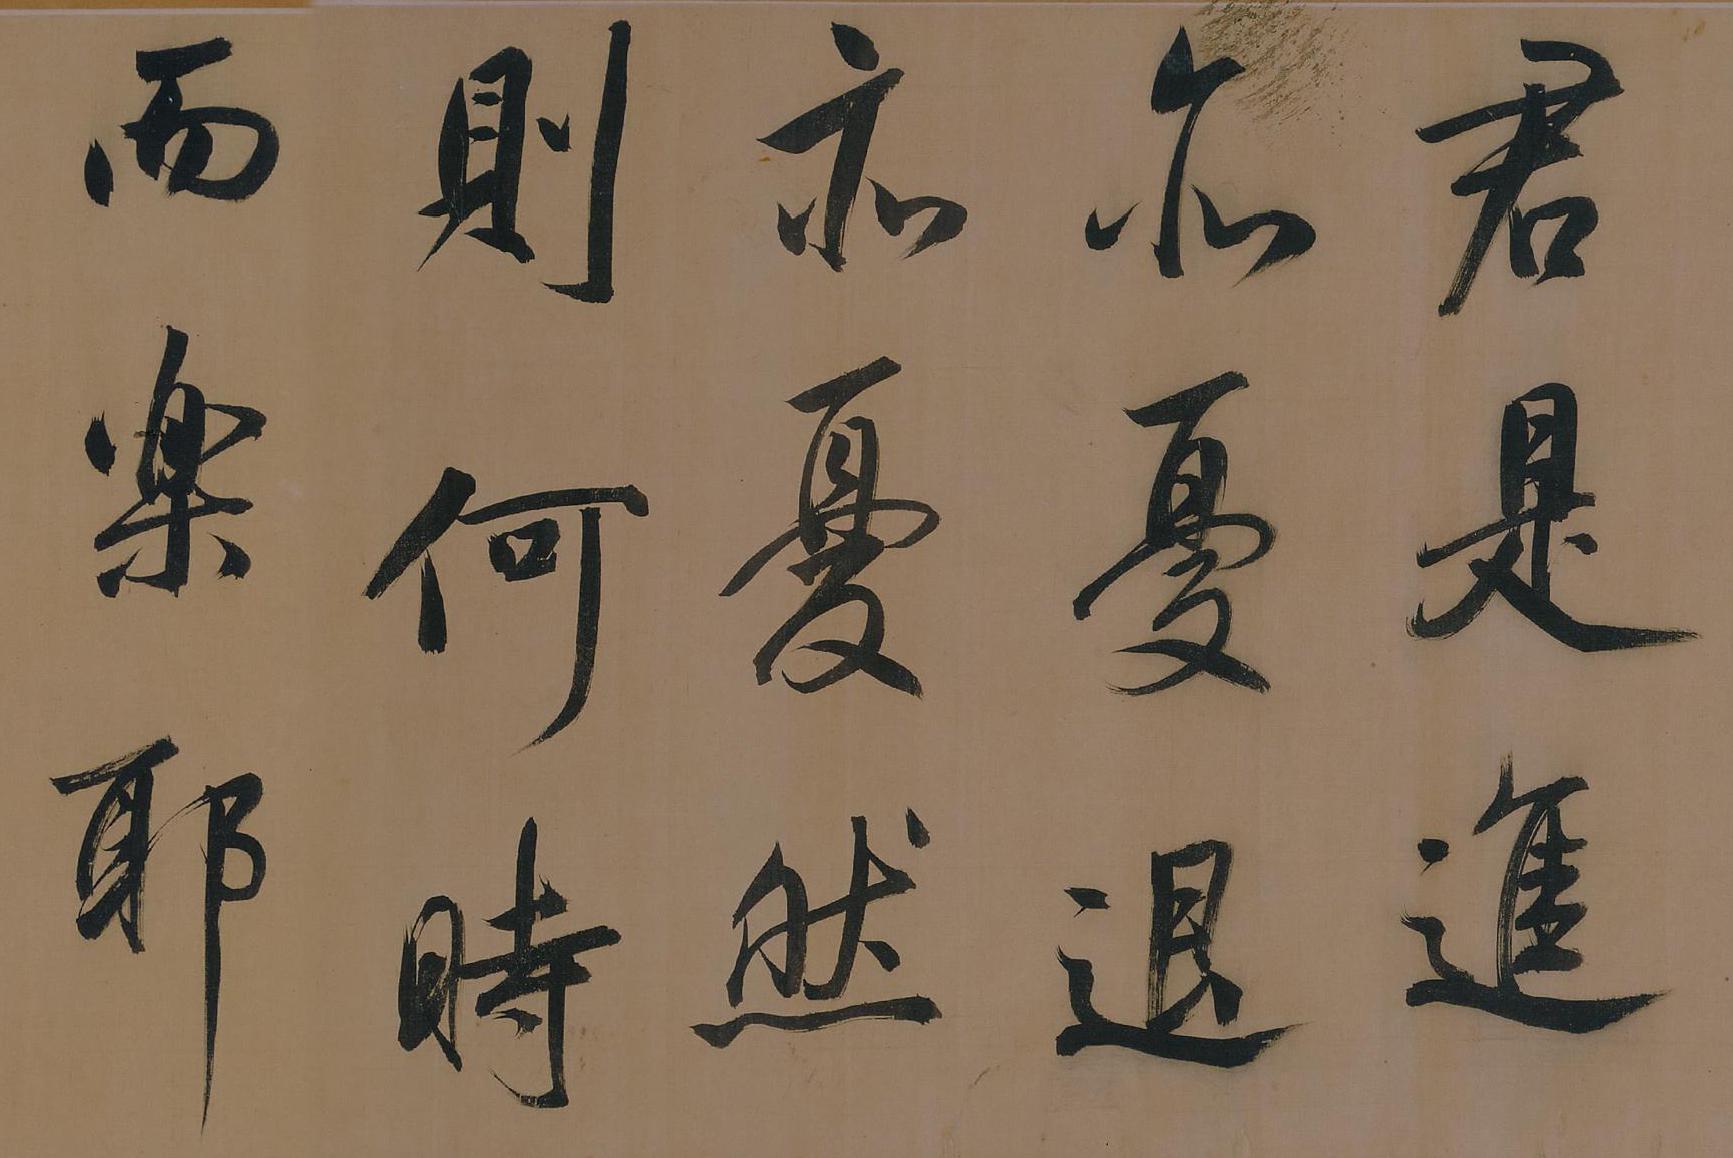 君是進
亦憂退
亦憂然
則何時
而楽耶